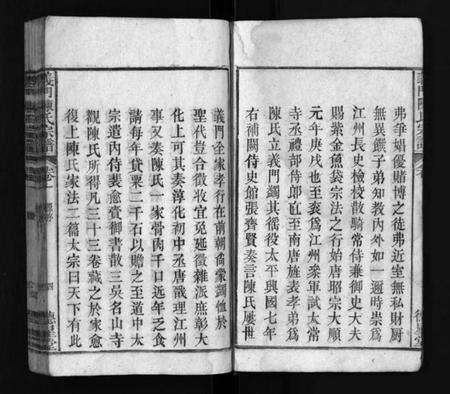 弗爭娼優賭博之徒弗近室無私財厨
無異饌子弟知教內外如一週時崇爲
江州長史檢校散騎常侍兼御史大夫
賜紫金魚袋宗法之行始唐昭宗大順
元年庚戌也至袞爲江州叅軍試太常
寺丞禮部侍郎直至南唐旌表孝弟爲
陳氏立義門蠲其徭役太平興國七年
右補闕侍史館張齊賢奏言陳氏屢世
義門全家孝行在前朝尚蒙蠲恤於
聖代豈合徵敛宜免雜徵雜派庶彰大
化上可其奏淳化初中丞唐戩理江州
事又奏陳氏一家骨肉千口近年乏食
請每年貸粟二千石以贍之至道中太
宗遣內侍裴愈賫御書散三吳名山寺
觀陳氏所得凡三十三卷藏之於家愈
復上陳氏家法二篇太宗曰天下有此
義門陳氏宗譜